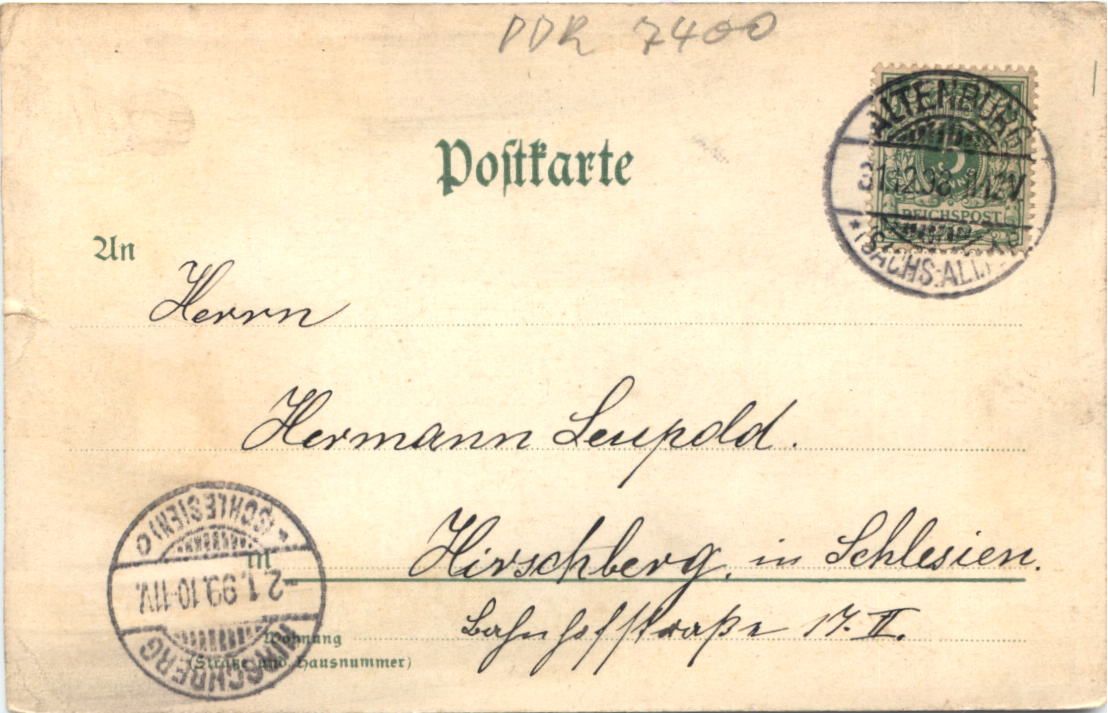 DDR 7400
Postkarte
ALTENBURG
31.12.98 11-12V.
* (SACHS.ALT.)
5
REICHSPOST
An
Herrn
Hermann Leupold.
in Hirschberg, in Schlesien.
Bahnhofstraße 17. II.
Wohnung
(Straße und Hausnummer)
HIRSCHBERG
2.1.99.10-11V.
* (SCHLESIEN) o